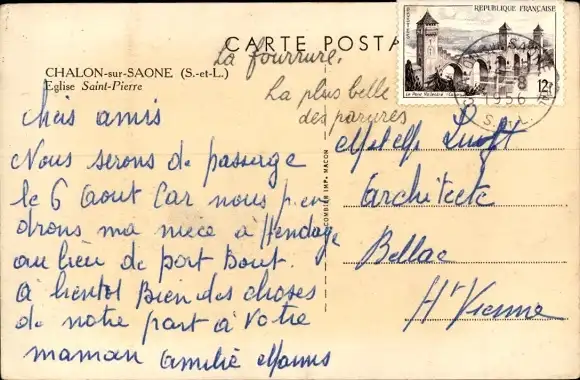 CARTE POSTA
RÉPUBLIQUE FRANÇAISE
12F
Le Pont Valentré
1956
CHALON-sur-SAONE (S.-et-L.)
Eglise Saint-Pierre
La fourrure,
La plus belle
des parures
Chers amis
Nous serons de passage
le 6 Aout Car nous pren
drons ma nièce à Hendage
au lieu de port Bout.
a bientot Bien des choses
de notre part à Votre
maman amitié
COMBIER IMP. MACON
Met Me
Architecte
Bellac
Hte Vienne